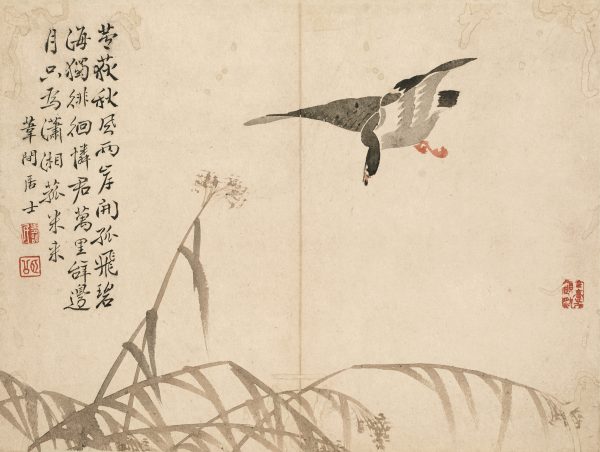 荻秋風兩岸開孤飛碧
海獨徘徊憐君萬里辭邊
月只為瀟湘菰米來
葦間居士